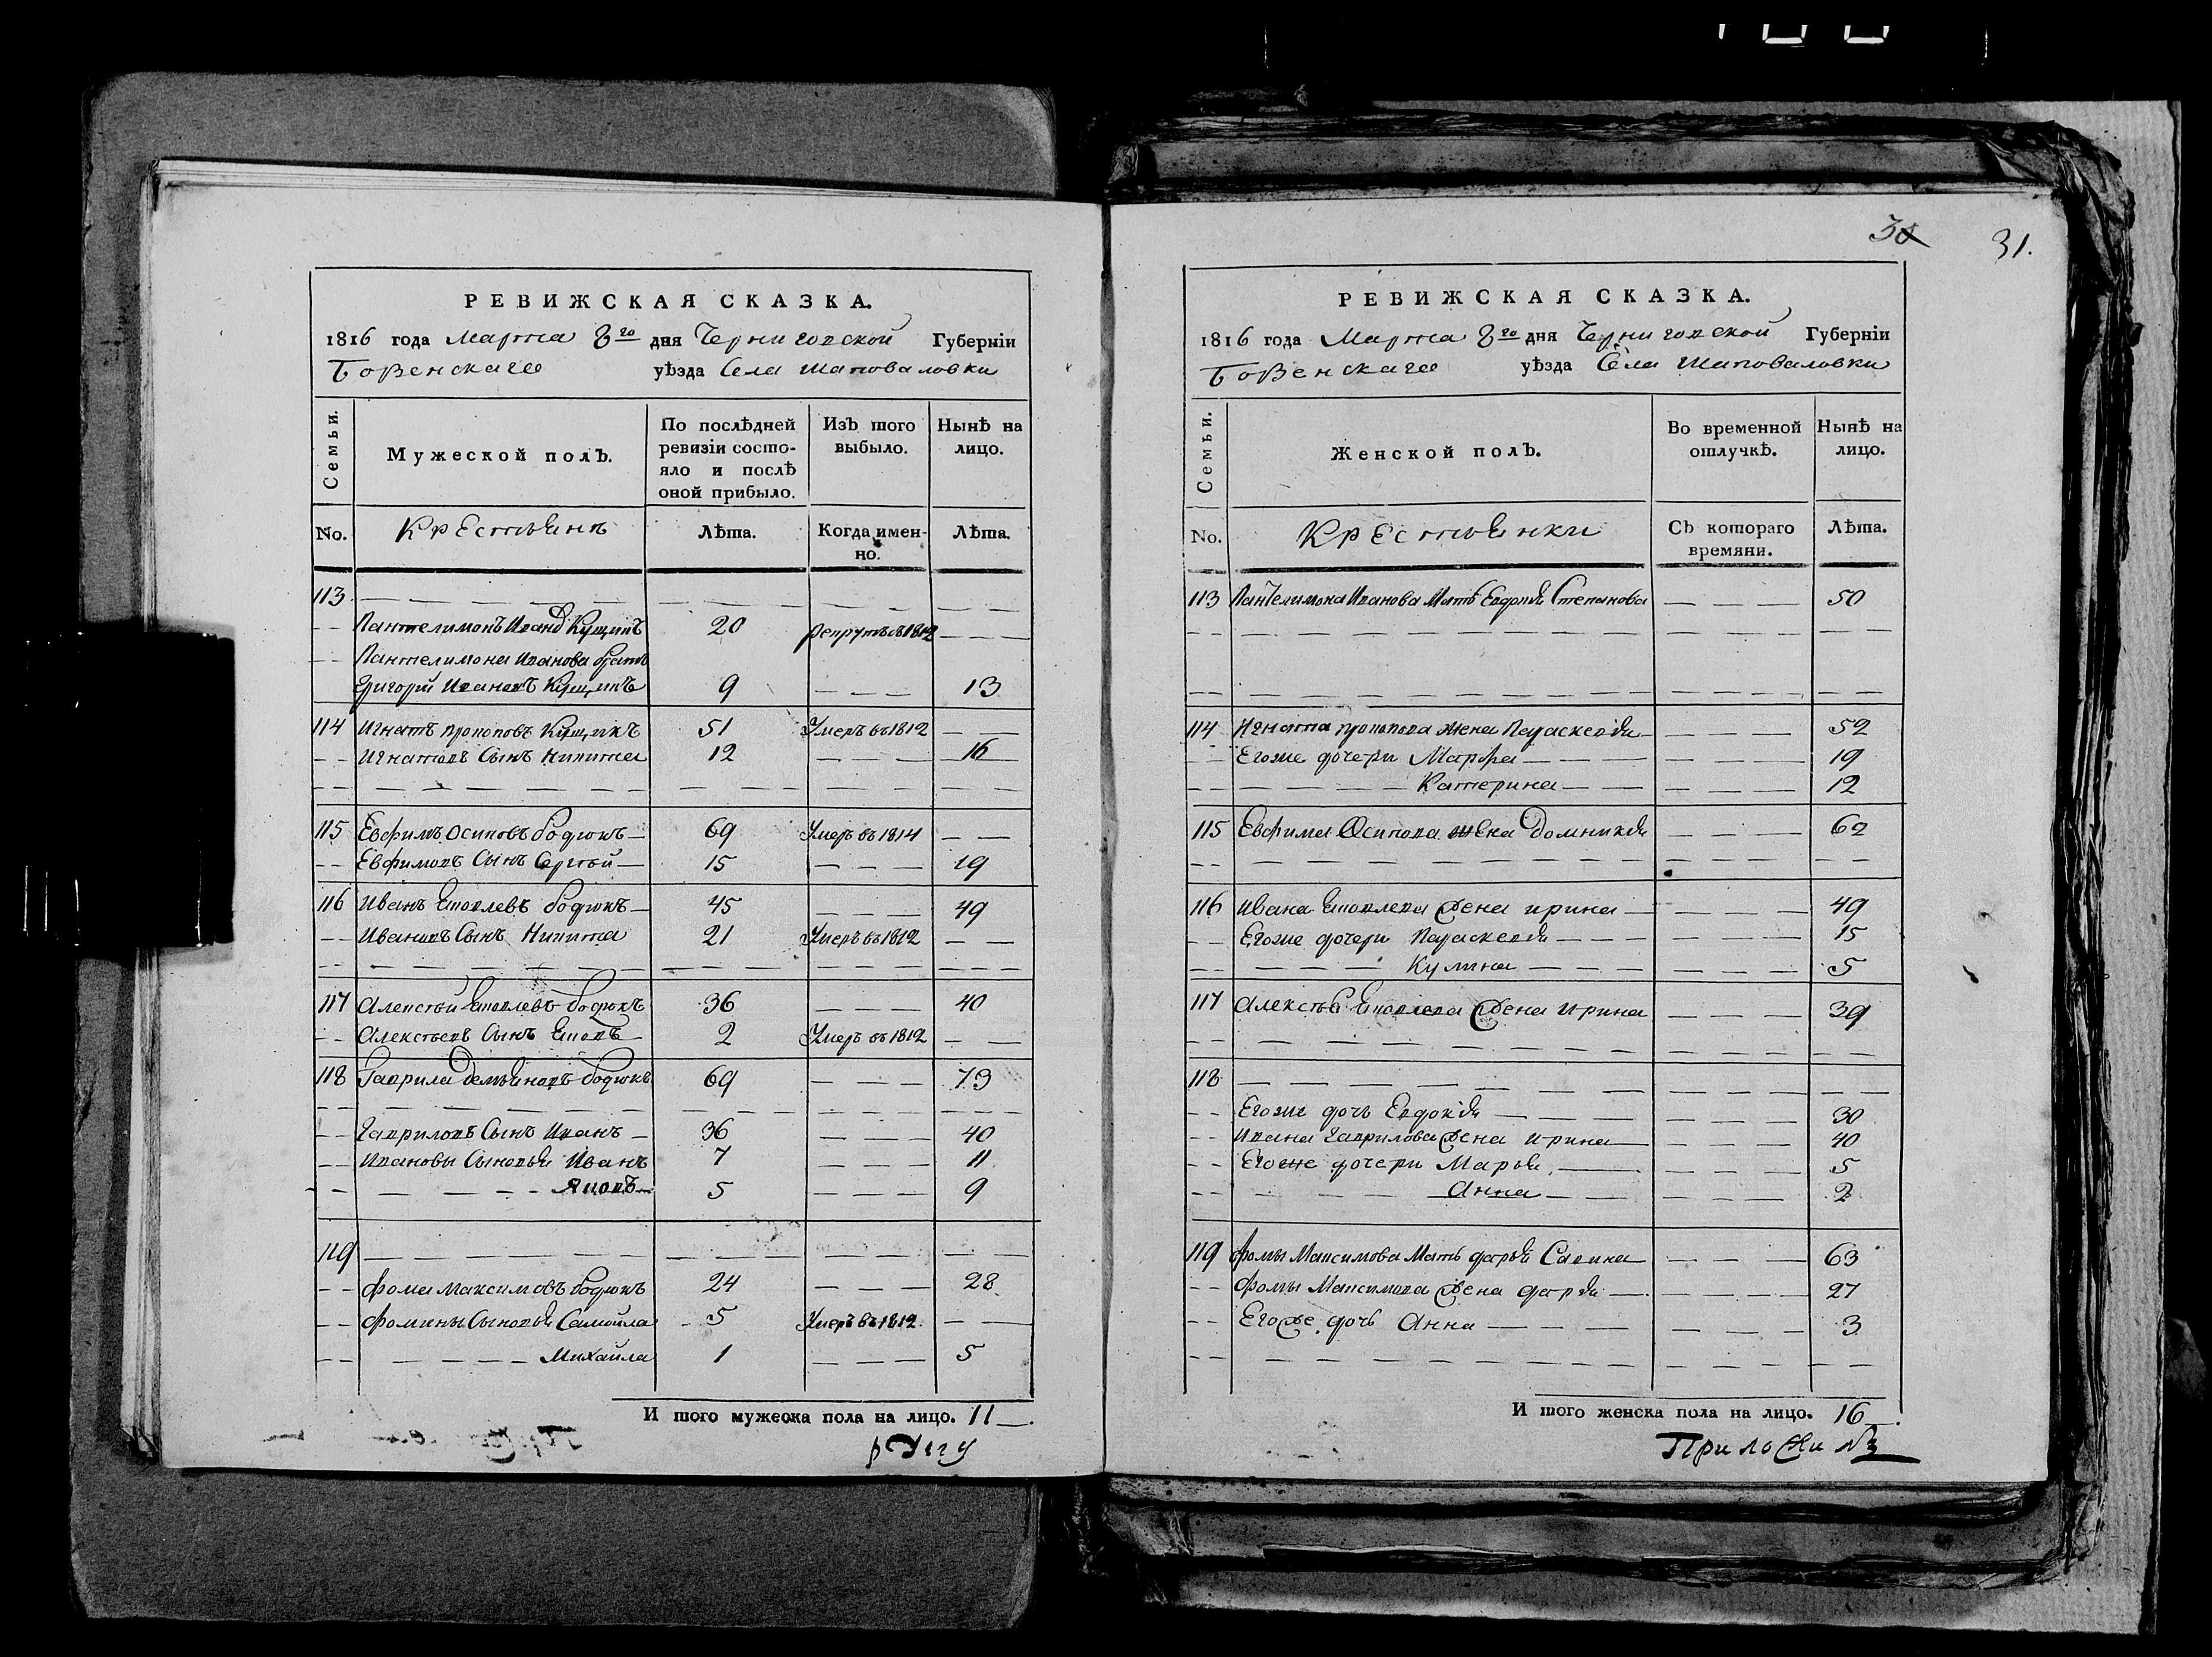 РЕВИЖСКАЯ СКАЗКА.
1816 года Марта 8го дня Черниговской Губерніи
Борзенскаго уѣзда Села Шаповаловки
Семьи.
Мужеской полъ.
По послѣдней ревизіи состояло и послѣ оной прибыло.
Изъ того выбыло.
Нынѣ на лицо.
No. Крестьянъ Лѣта. Когда именно. Лѣта.
113
Пантелимонъ Иванов 20 1812
Пантелимона Иванова братъ
Григорий Ивановъ 9 13
114 Игнатъ Прокоповъ 51 Умеръ въ 1812
Игнатовъ Сынъ Никита 12 16
115 Евфимъ Осиповъ Бодюкъ 69 Умеръ въ 1814
Евфимовъ Сынъ Сергѣй 15 19
116 Иванъ Яковлевъ Бодюкъ 45 49
Ивановъ Сынъ Никита 21 Умеръ въ 1812
117 Алексѣй Яковлевъ Бодюкъ 36 40
Алексѣевъ Сынъ Яковъ 2 Умеръ въ 1812
118 Гаврила Демьяновъ Бодюкъ 69 73
Гавриловъ Сынъ Иванъ 36 40
Ивановы Сыновья Иванъ 7 11
Яковъ 5 9
119
Фома Максимовъ Бодюкъ 24 28
Фомины Сыновья Самойла 5 Умеръ въ 1812
Михайла 1 5
И того мужеска пола на лицо. 11
30 31.
РЕВИЖСКАЯ СКАЗКА.
1816 года Марта 8го дня Черниговской Губерніи
Борзенскаго уѣзда Села Шаповаловки
Семьи.
Женской полъ.
Во временной отлучкѣ.
Нынѣ на лицо.
No. Крестьянки Съ котораго времяни. Лѣта.
113 Пантелимона Иванова Мать Евдокія Степанова 50
114 Игната Прокопова жена Параскевія 52
Егоже дочери Марфа 19
Катерина 12
115 Евфима Осипова жена Домникія 62
116 Ивана Яковлева жена Ирина 49
Егоже дочери Параскевія 15
Кулина 5
117 Алексѣя Яковлева жена Ирина 39
118
Егоже дочь Евдокія 30
Ивана Гаврилова жена Ирина 40
Егоже дочери Марья 5
Анна 2
119 Фомы Максимова Мать Дарья Савина 63
Фомы Максимова жена Дарія 27
Егоже дочь Анна 3
И того женска пола на лицо. 16